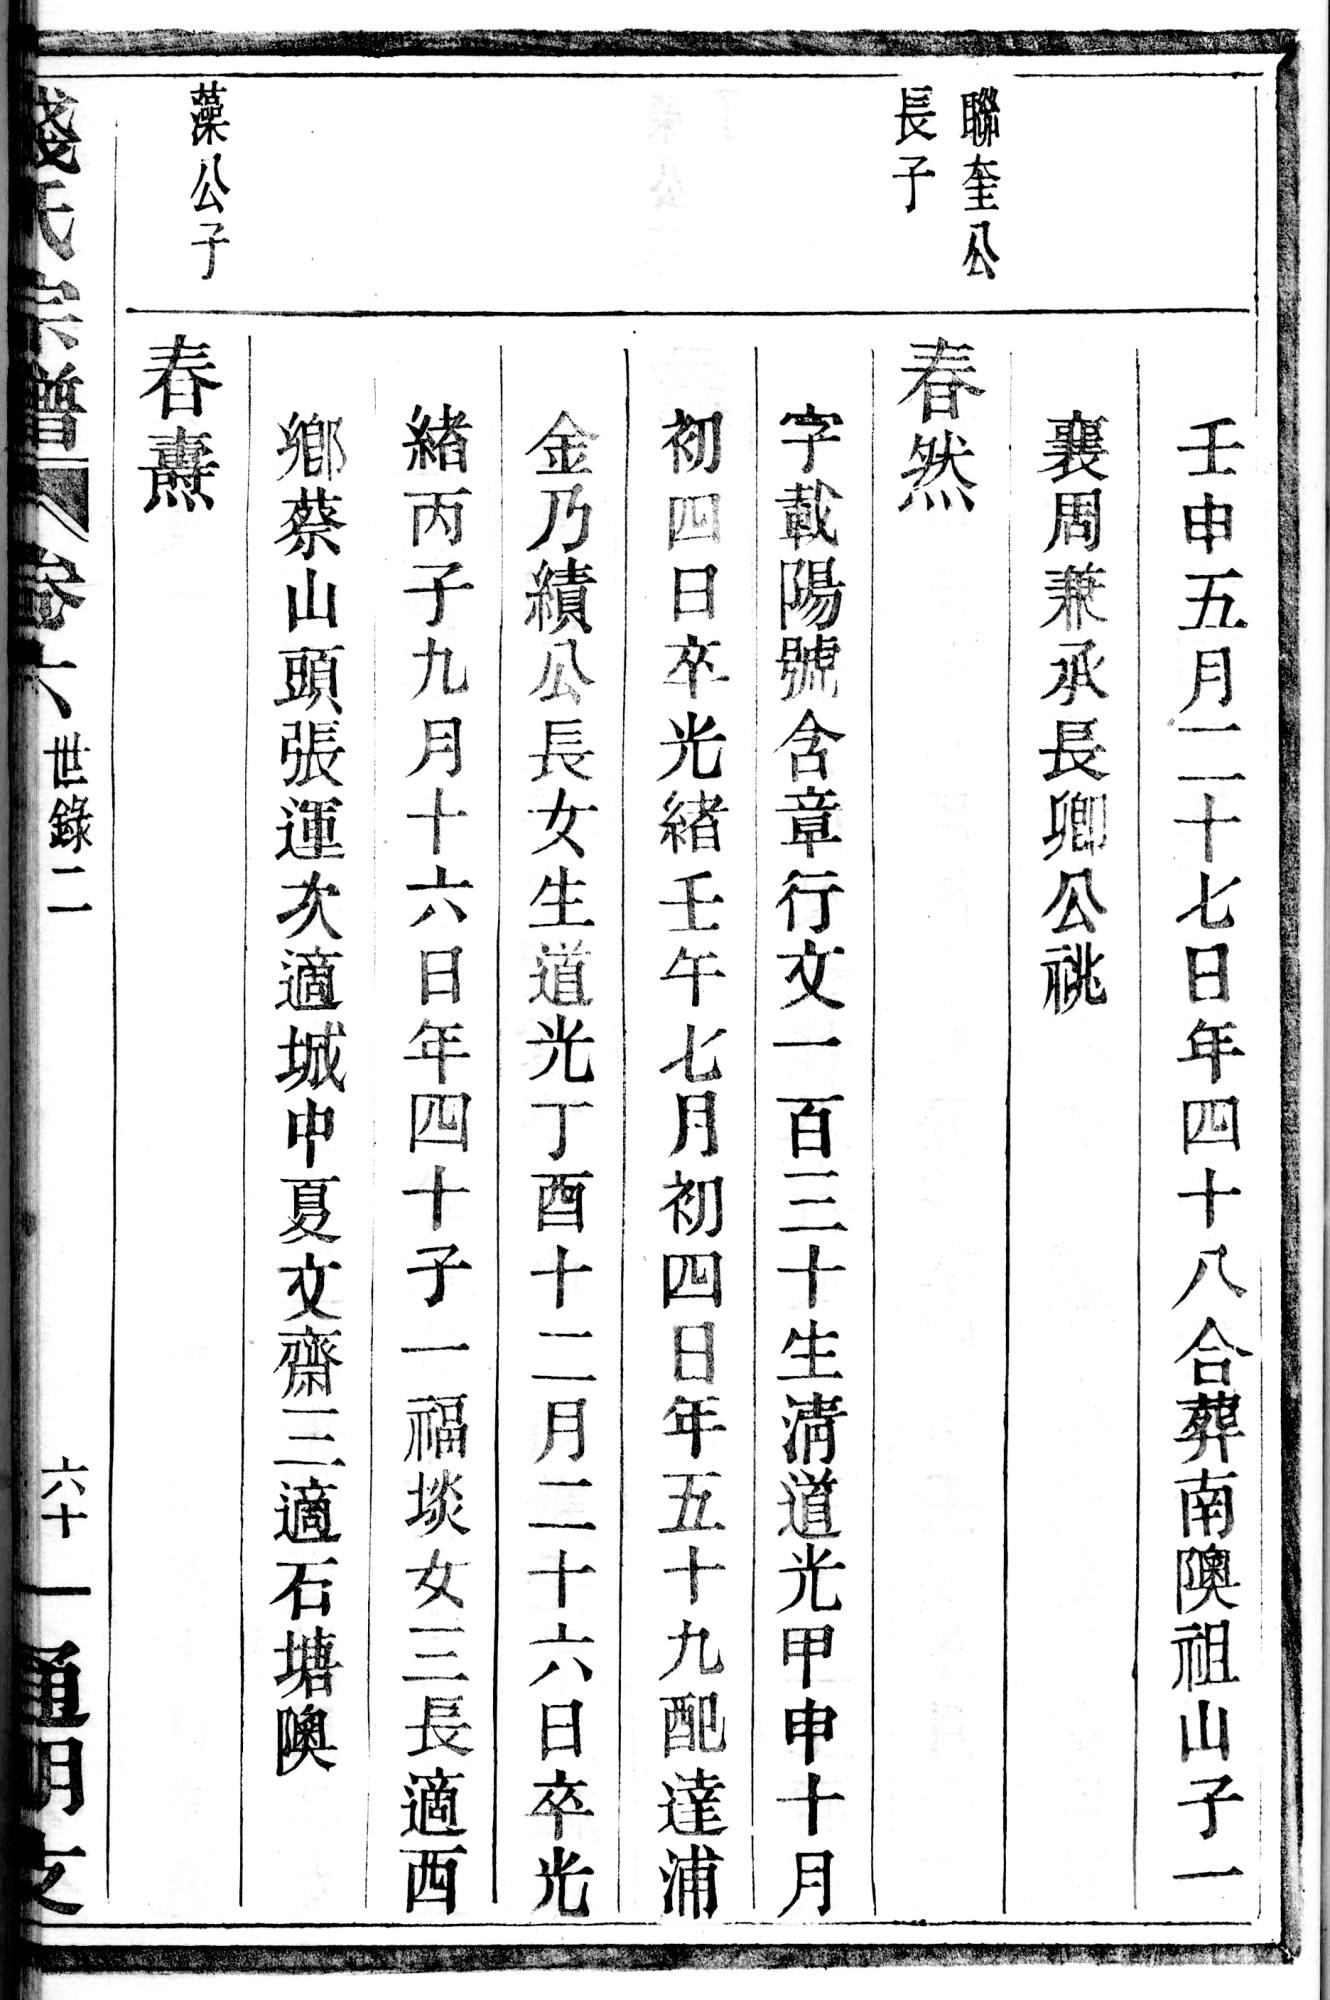 壬申五月二十七日年四十八合葬南隩祖山子一
襄周兼承長卿公祧
聯奎公
長子
春然
字載陽號含章行文一百三十生淸道光甲申十月
初四日卒光緒壬午七月初四日年五十九配達浦
金乃績公長女生道光丁酉十二月二十六日卒光
緖丙子九月十六日年四十子一福埮女三長適西
鄉蔡山頭張運次適城中夏文齋三適石塘隩
藻公子
春燾
錢氏宗譜
卷六
世錄二
六十一
通明支